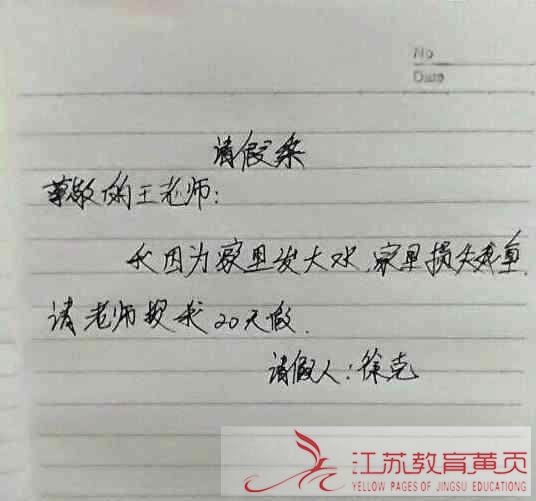 No
Date
请假条
尊敬的王老师:
我因为家里发大水,家里损失惨重,
请老师授我20天假.
请假人:徐克
江苏教育黄页
YELLOW PAGES OF JINGSU EDUCATIONG